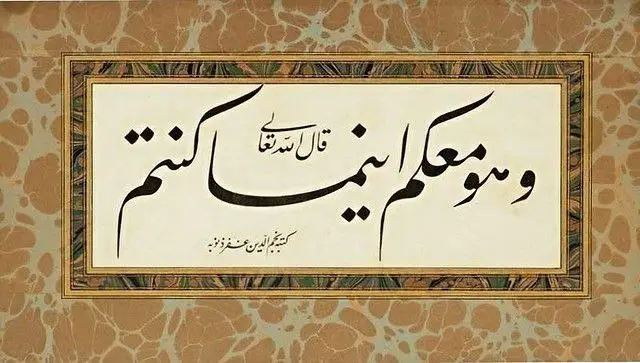 قال الله تعالى
وهو معكم اينما كنتم
كتبه نجم الدين غفر ذنوبه